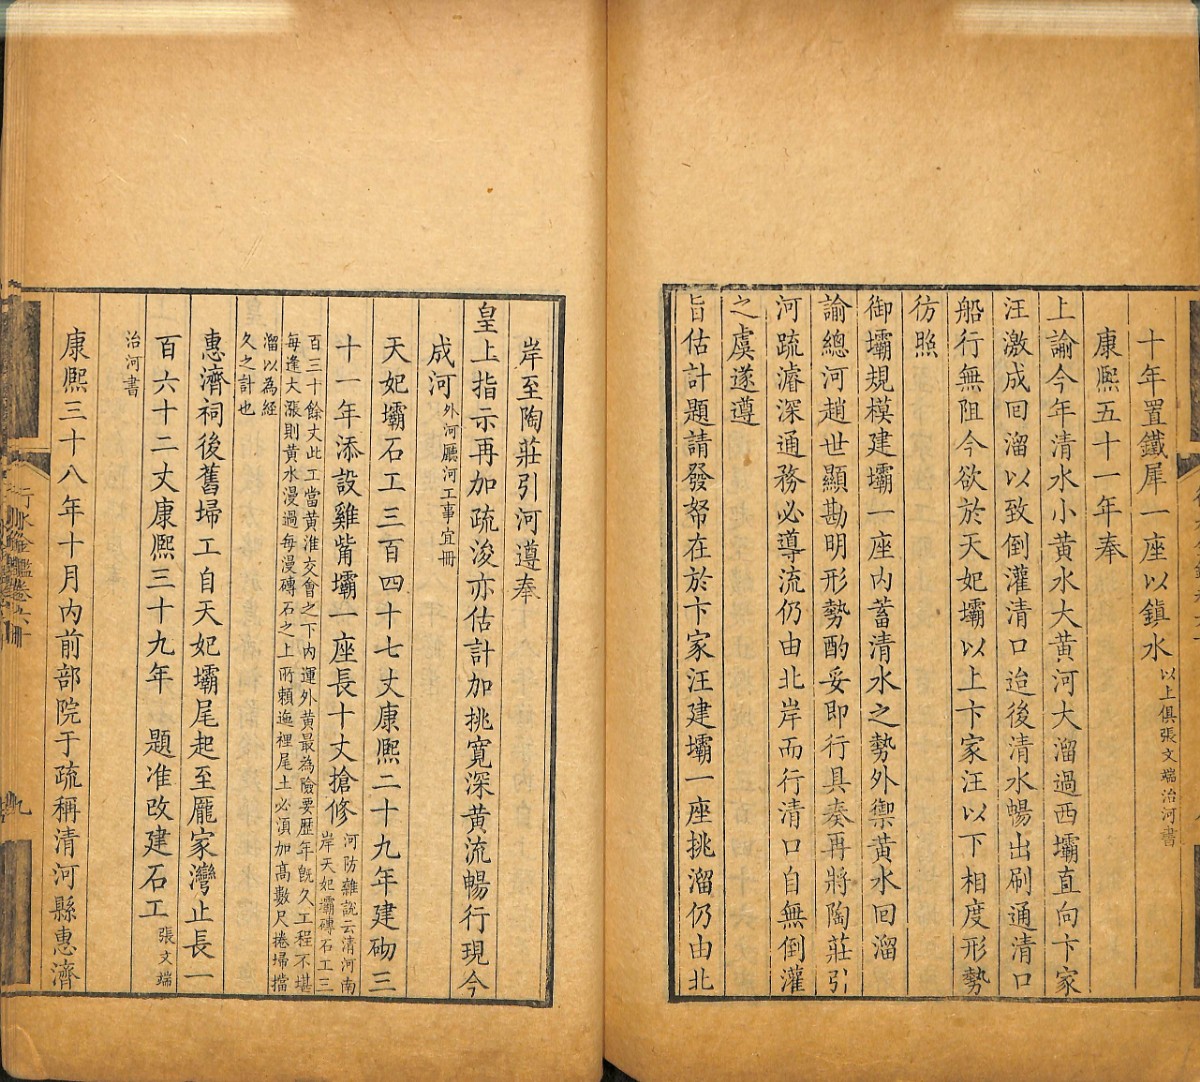 十年置鐵犀一座以鎮水以上俱張文端治河書
康熙五十一年奉
上諭今年清水小黃水大黃河大溜過西壩直向卞家
汪激成回溜以致倒灌清口迨後清水暢出刷通清口
船行無阻今欲於天妃壩以上卞家汪以下相度形勢
彷照
御壩規模建壩一座內蓄清水之勢外禦黃水回溜
諭總河趙世顯勘明形勢酌妥即行具奏再將陶莊引
河疏濬深通務必導流仍由北岸而行清口自無倒灌
之虞遂遵
旨估計題請發帑在於卞家汪建壩一座挑溜仍由北
岸至陶莊引河遵奉
皇上指示再加疏浚亦估計加挑寬深黃流暢行現今
成河外河廳河工事宜冊
天妃壩石工三百四十七丈康熙二十九年建砌三
十一年添設雞嘴壩一座長十丈搶修河防雜說云清河南
岸天妃壩磚石工三
百三十餘丈此工當黃淮交會之下內運外黃最為險要歷年旣久工程不堪
每逢大漲則黃水漫過每漫磚石之上所賴迤裡尾土必須加高數尺捲埽擋
溜以為經
久之計也
惠濟祠後舊埽工自天妃壩尾起至龐家灣止長一
百六十二丈康熙三十九年題准改建石工張文端
治河書
康熙三十八年十月內前部院于疏稱清河縣惠濟
行水金鑑卷六十
九